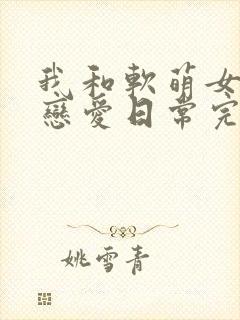 我和軟萌女
戀愛日常完
姚雪青